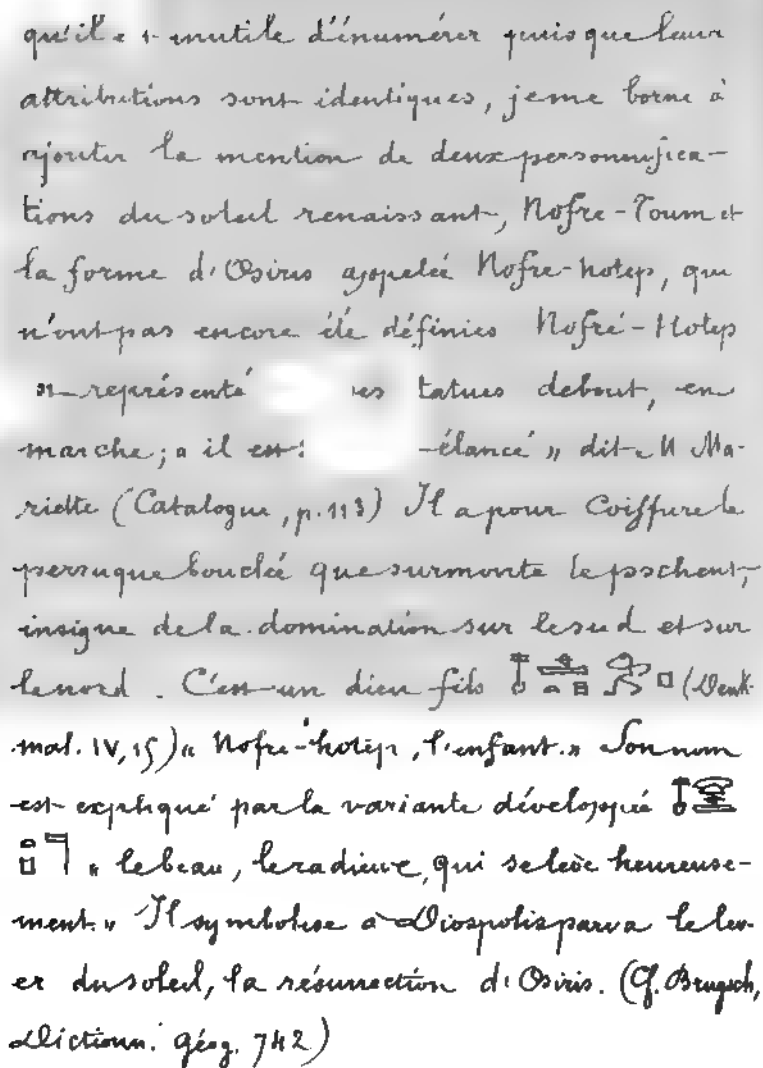 qu'il est inutile d'énumérer puisque leurs
attributions sont identiques, je me borne à
ajouter la mention de deux personnifica-
tions du soleil renaissant, Nofre-Toum et
la forme d'Osiris appelée Nofre-hotep, qui
n'ont pas encore été définies Nofré-Hotep
représenté statues debout, en
marche; « il est élancé » dit Ma-
riette (Catalogue, p. 113) Il a pour coiffure la
perruque bouclée que surmonte le pschent,
insigne de la domination sur le sud et sur
le nord. C'est un dieu fils (Denk-
mal. IV, 15) « Nofre-hotep, l'enfant. » Son nom
est expliqué par la variante développée
« le beau, le radieux, qui se lève heureuse-
ment. » Il symbolise à Diospolis parva le lev-
er du soleil, la résurrection d'Osiris. (Cf. Brugsch,
Dictionn. géog. 742)